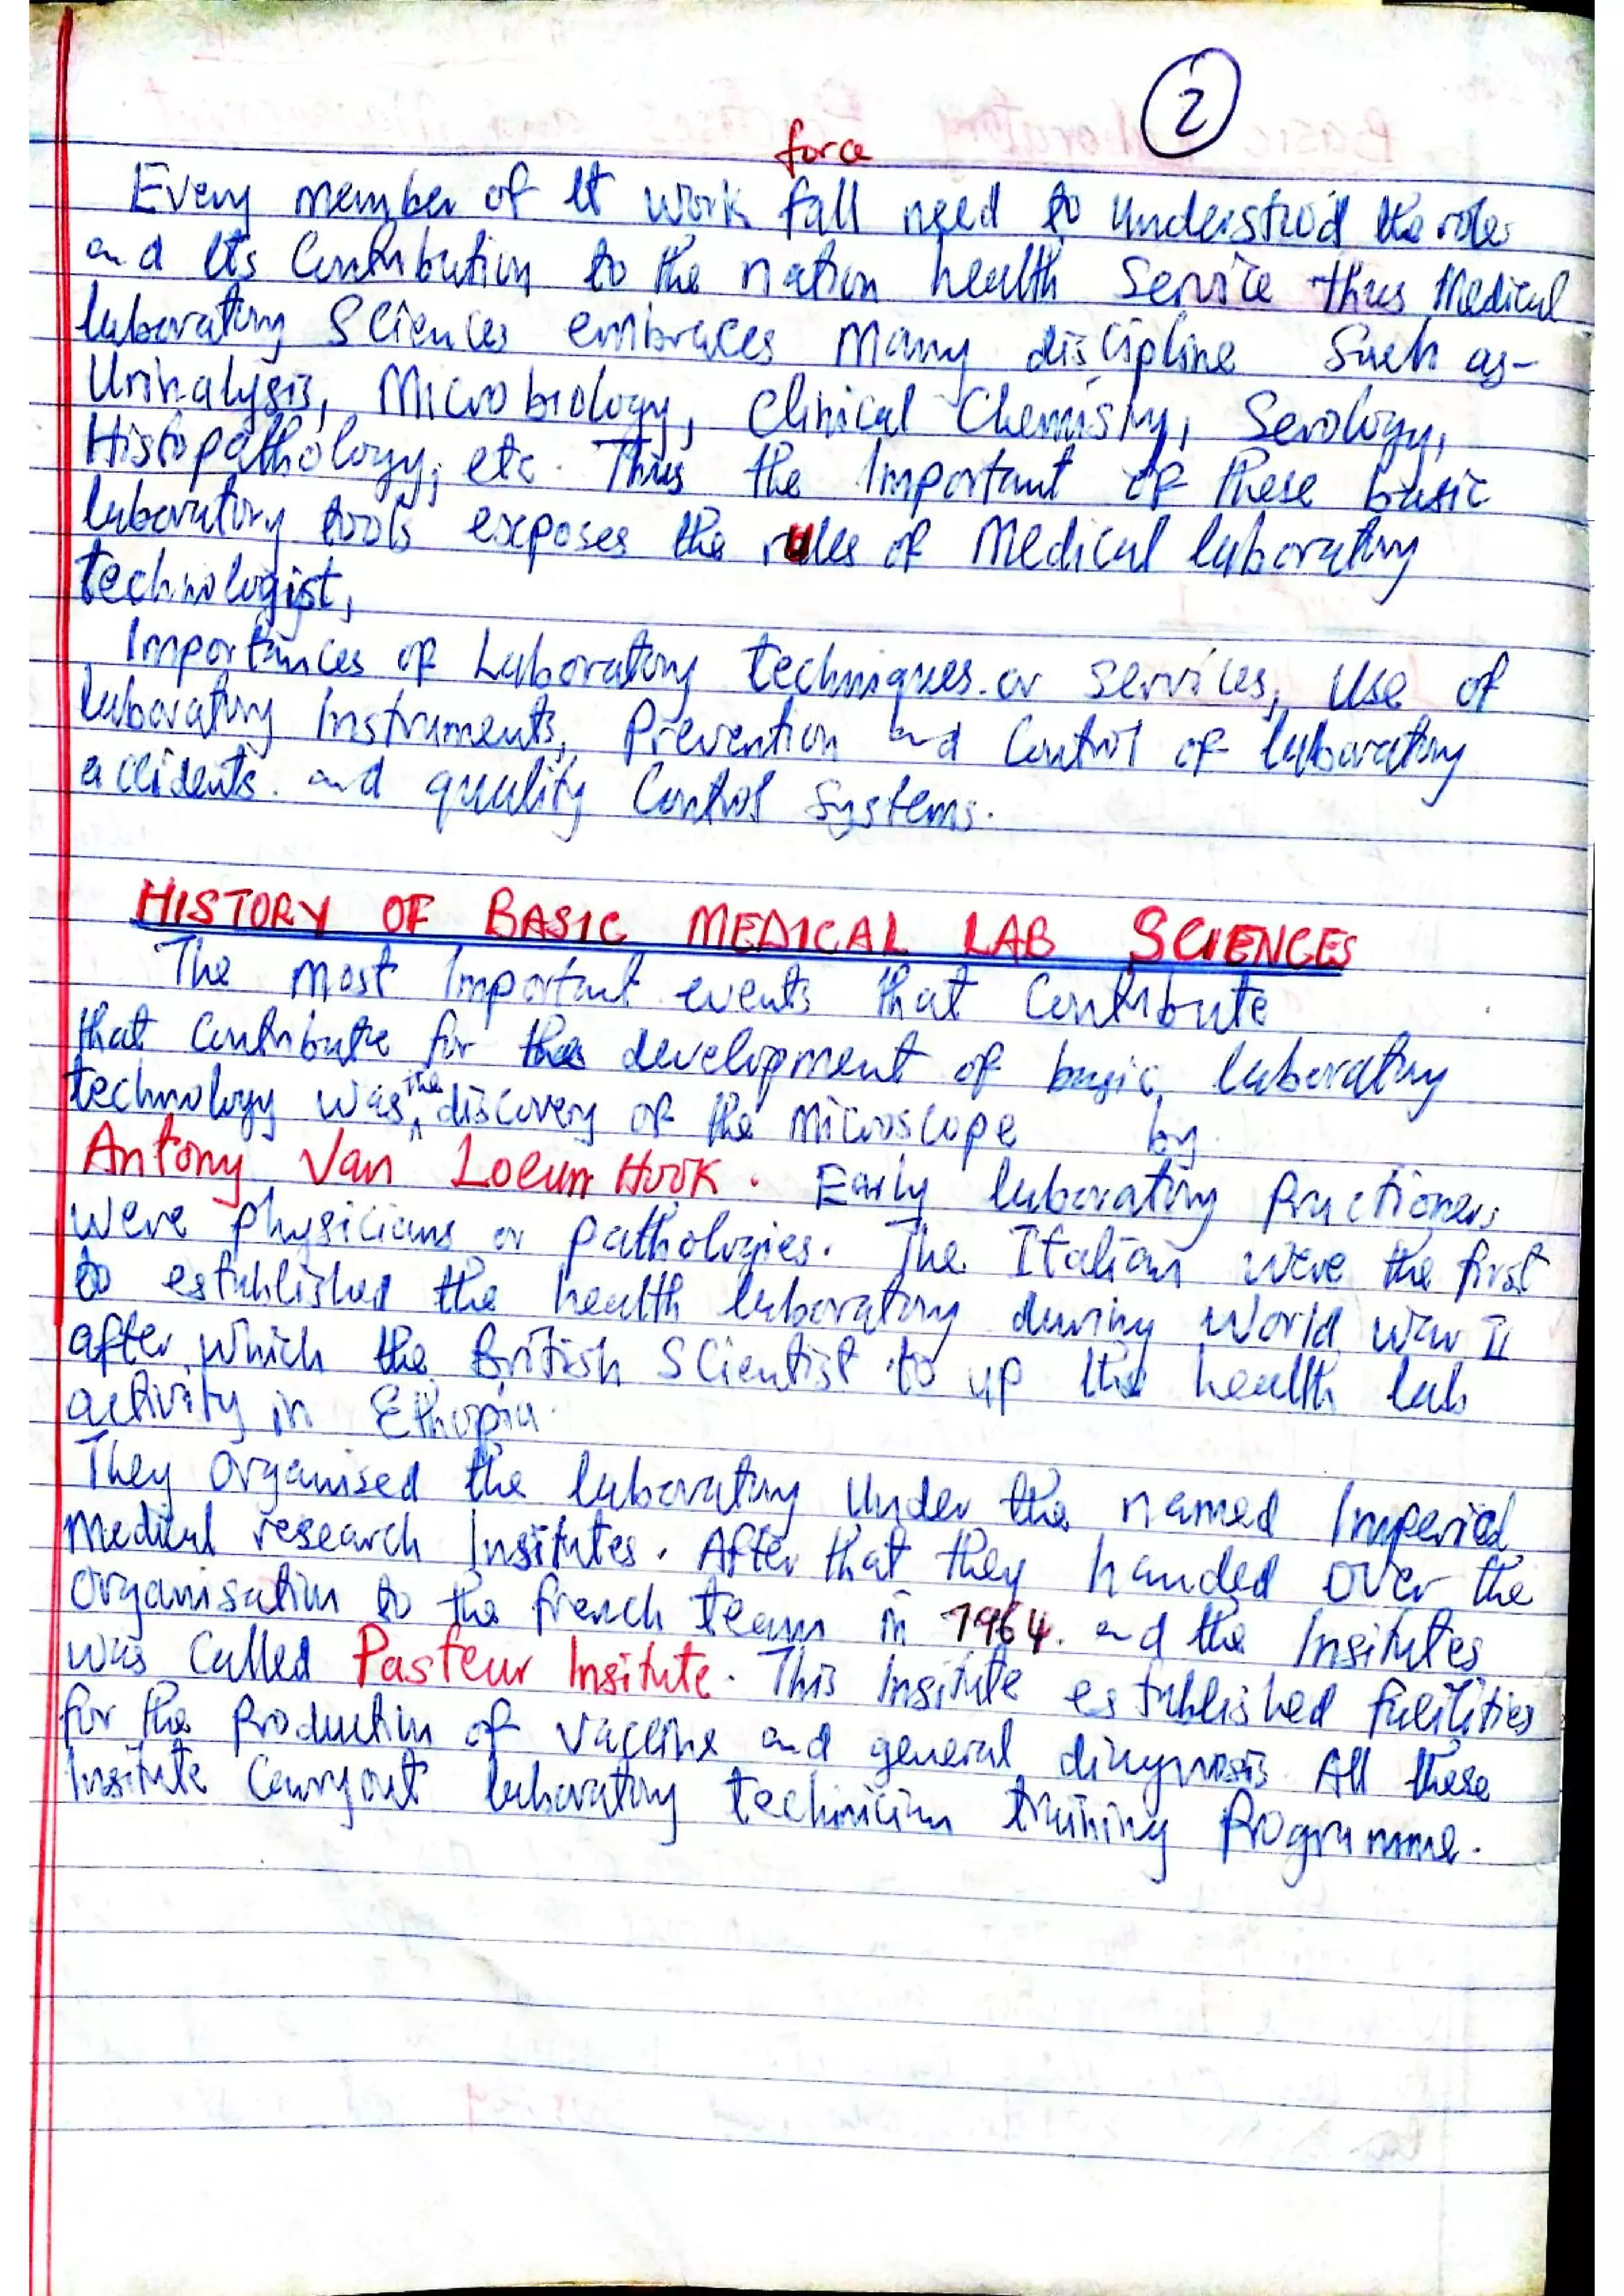 2
force
Every member of It work fall need to understood the roles
and Its Contribution to the nation health Service thus Medical
laboratory Sciences embraces many discipline Such as-
Urinalysis, Microbiology, Clinical Chemistry, Serology,
Histopathology, etc. Thus the Important of these basic
laboratory tools exposes the rules of Medical laboratory
technologist,
Importances of Laboratory techniques or services, Use of
laboratory Instruments, Prevention and Control of laboratory
accidents. and quality Control Systems.
HISTORY OF BASIC MEDICAL LAB SCIENCES
The most Important events that Contribute
that Contribute for the development of basic laboratory
technology was the discovery of the Microscope by
Antony Van Loeun Hook. Early laboratory Practioners
were physicians or pathologies. The Italian were the first
to established the health laboratory during World War II
after which the British Scientist to up the health lab
activity in Ethopia.
They Organised the laboratory Under the named Imperial
Medical research Insitutes. After that they handed over the
Organisation to the french team in 1964. and the Insitutes
was Called Pasteur Insitute. This Insitute established facilities
for the Production of Vaccine and general diagnosis All these
Insitute Carryout laboratory technician training Programme.